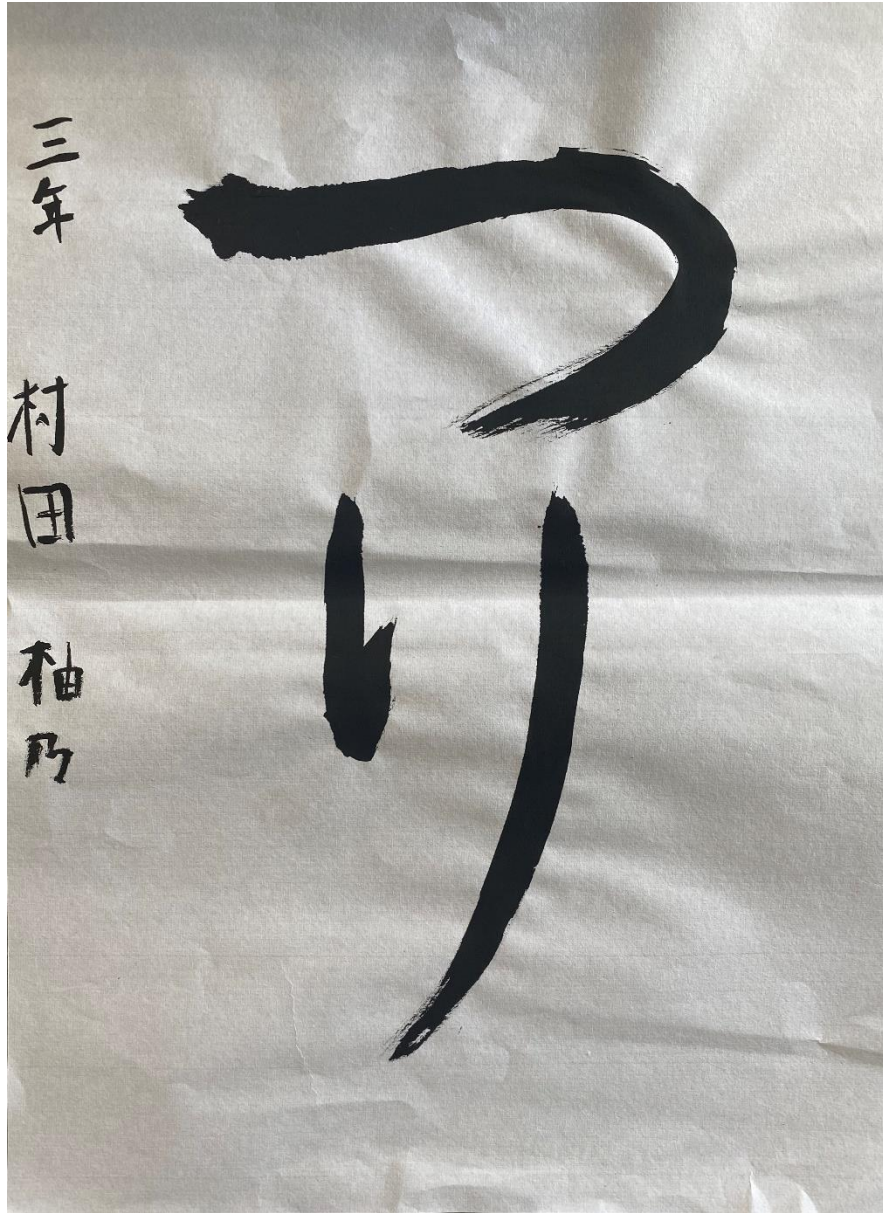 つり
三年 村田 柚乃